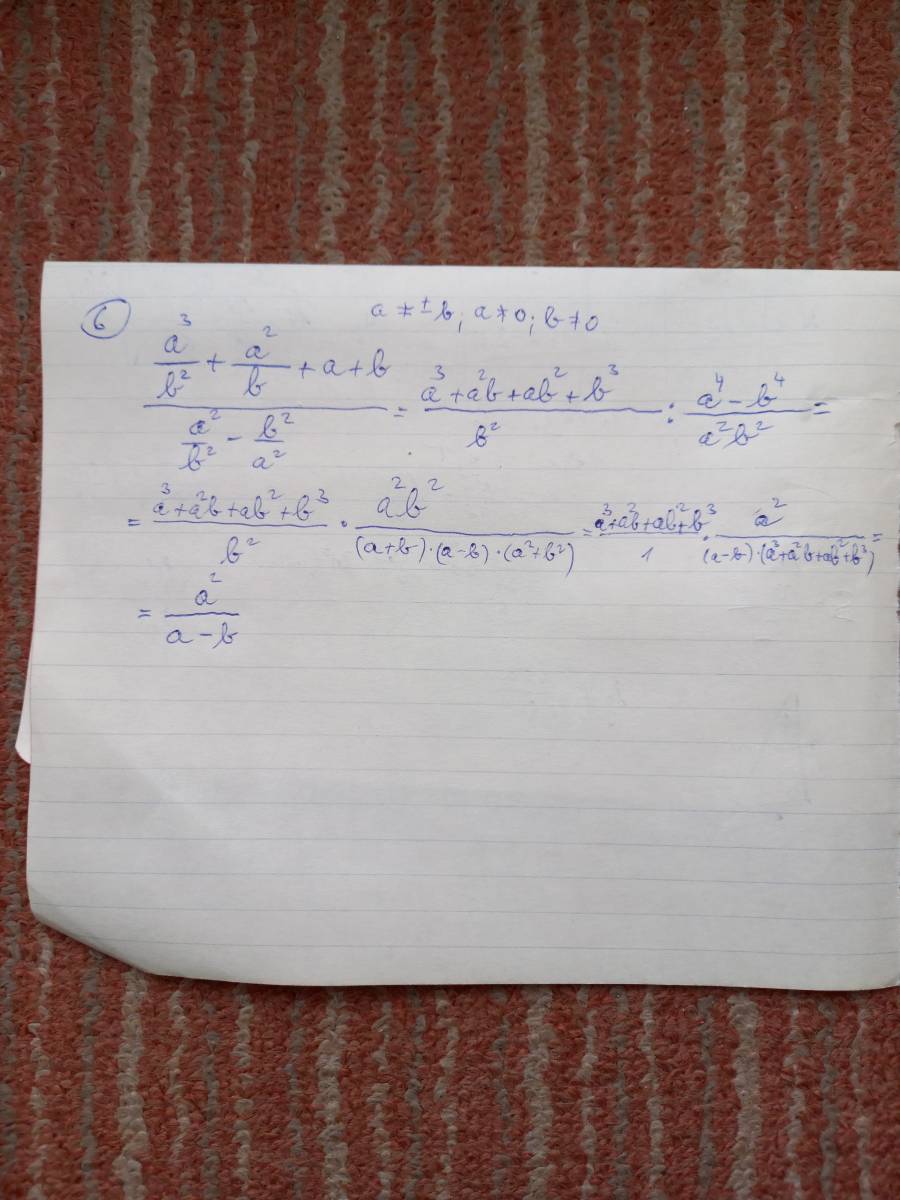 6 a ≠ ±b; a ≠ 0; b ≠ 0
(a³/b² + a²/b + a + b)/(a²/b² − b²/a²) = (a³ + a²b + ab² + b³)/b² : (a⁴ − b⁴)/(a²b²) =
= (a³ + a²b + ab² + b³)/b² · (a²b²)/((a+b)·(a−b)·(a²+b²)) = (a³+ab²+ab²+b³)/1 · a²/((a−b)·(a³+a²b+ab²+b³)) =
= a²/(a − b)